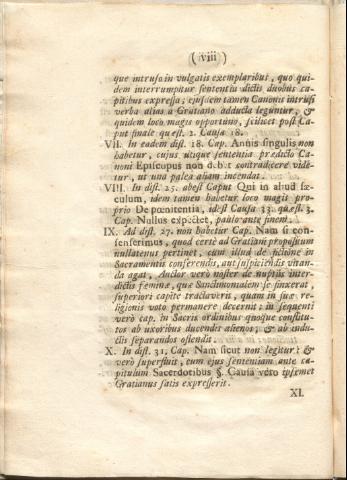 ( viii )
que intruso in vulgatis exemplaribus, quo qui-
dem interrumpitur sententia dictis duobus ca-
pitibus expressa; ejusdem tamen Canonis intrusi
verba alias a Gratiano adducta leguntur, &
quidem loco magis opportuno, scilicet post Ca-
put finale quæst. 2. Causa 18.
VII. In eadem dist. 18. Cap. Annis singulis non
habetur, cujus utique sententia prædicto Ca-
noni Episcopus non d.b.t contradicere vide-
tur, ut una palea aliam incendat.
VIII. In dist. 25. abest Caput Qui in aliud sæ-
culum, idem tamen habetur loco magis pro-
prio De pœnitentia, idest Causa 33. quæst. 3.
Cap. Nullus expectet, paulo ante finem.
IX. Ad dist. 27. non habetur Cap. Nam si con-
senserimus, quod certè ad Gratiani propositum
nullatenus pertinet, cum illud de fictione in
Sacramentis conferendis, aut suscipiendis vitan-
da agat, Auctor verò noster de nuptiis inter-
dictis fæminæ, quæ Sanctimonialem se finxerat,
superiori capite tractaverit, quam in suæ re-
ligionis voto permanere decernit; in sequenti
verò cap. in Sacris ordinibus quoque constitu-
tos ab uxoribus ducendis alienos, & ab indu-
ctis separandos ostendit.
X. In dist. 31. Cap. Nam sicut non legitur: &
verò superfluit, cum ejus sententiam ante ca-
pitulum Sacerdotibus §. Causa vero ipsemet
Gratianus satis expresserit.
XI.